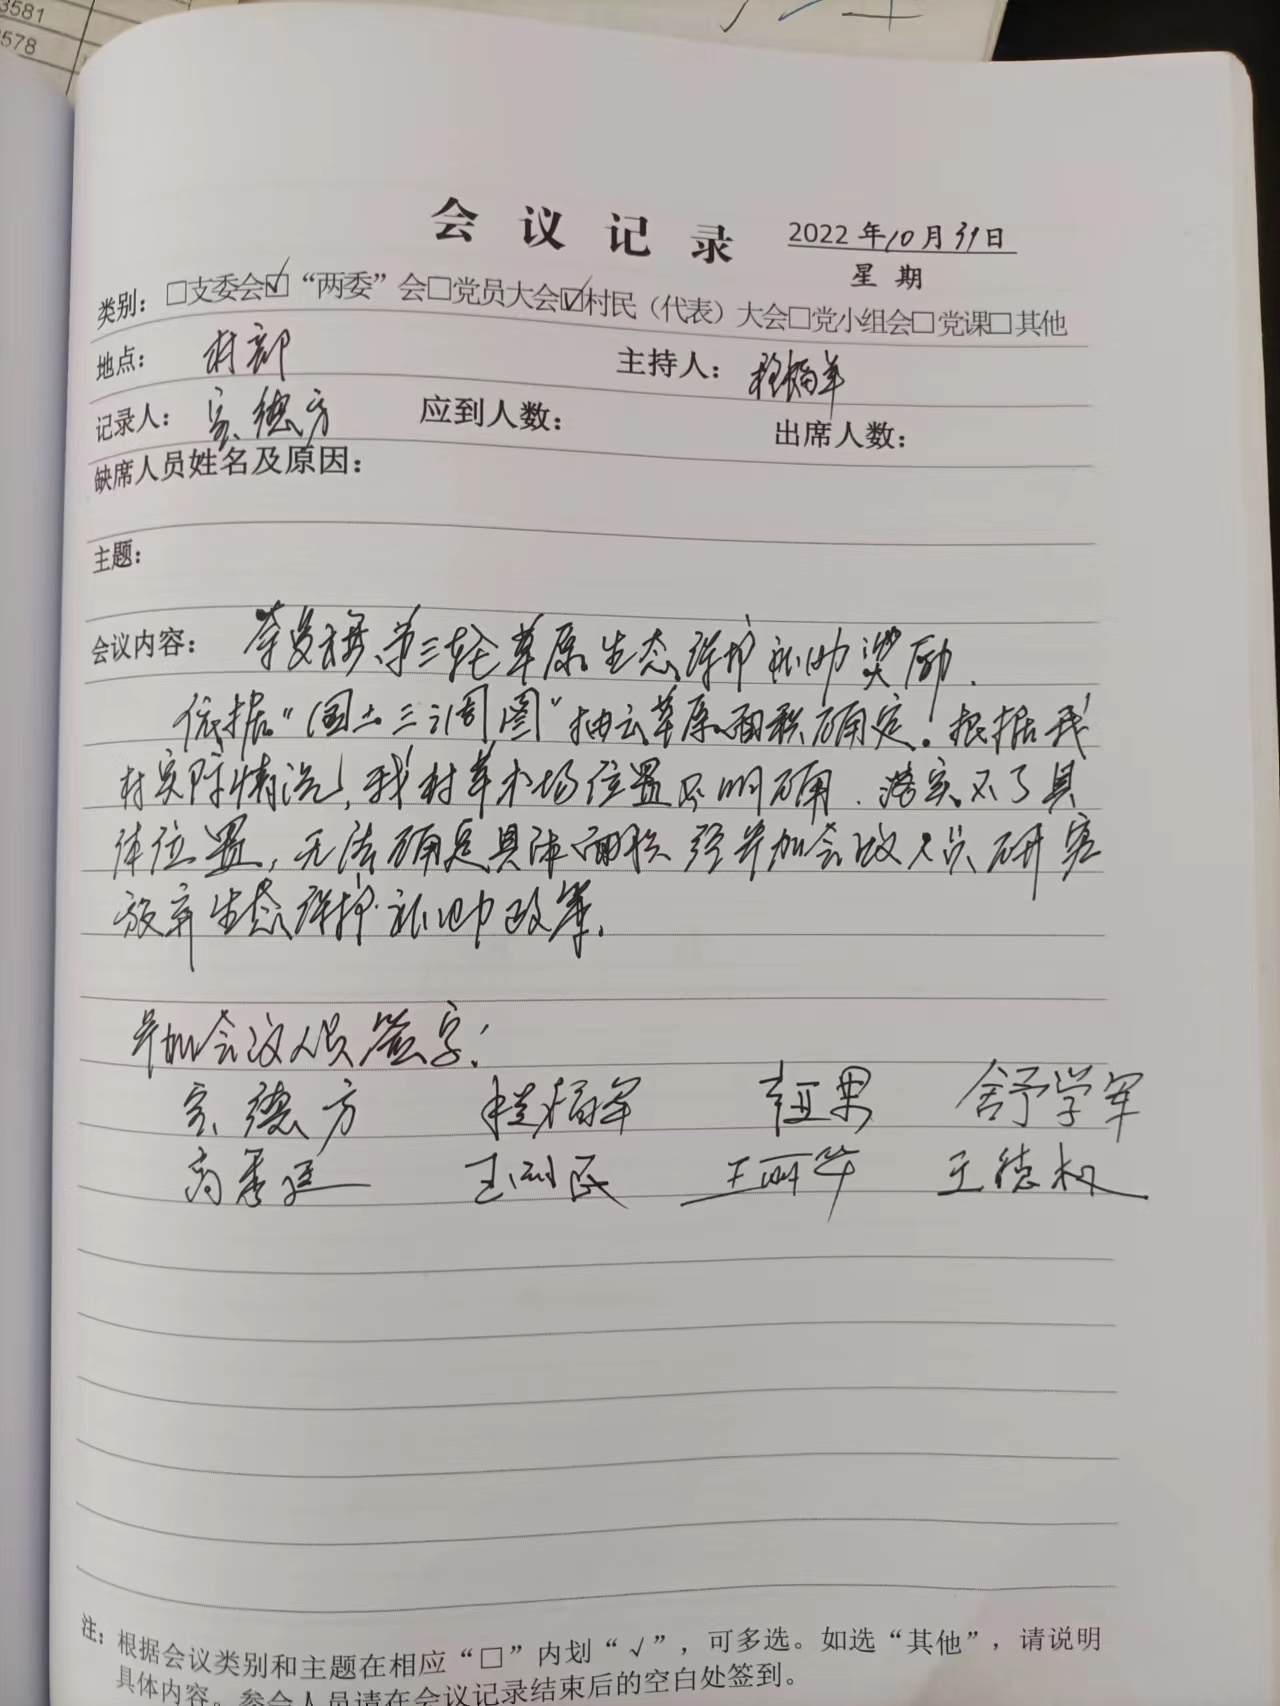 3581
3578
会议记录 2022年10月31日
星期
类别：□支委会☑“两委”会□党员大会☑村民（代表）大会□党小组会□党课□其他
地点：村部 主持人：程福军
记录人：宗德方 应到人数： 出席人数：
缺席人员姓名及原因：
主题：
会议内容： 第三轮草原生态保护补助奖励.
依据“国土三调图”抽云草原面积确定！根据我
村实际情况，我村草木场位置不明确．落实不了具
体位置，无法确定具体面积 经参加会议人员研究
放弃生态保护补助政策.
参加会议人员签字：
宗德方 程福军 舒学军
王丽华 王德权
注：根据会议类别和主题在相应“□”内划“√”，可多选。如选“其他”，请说明
具体内容。参会人员请在会议记录结束后的空白处签到。